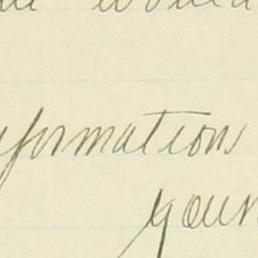 would
formations
your